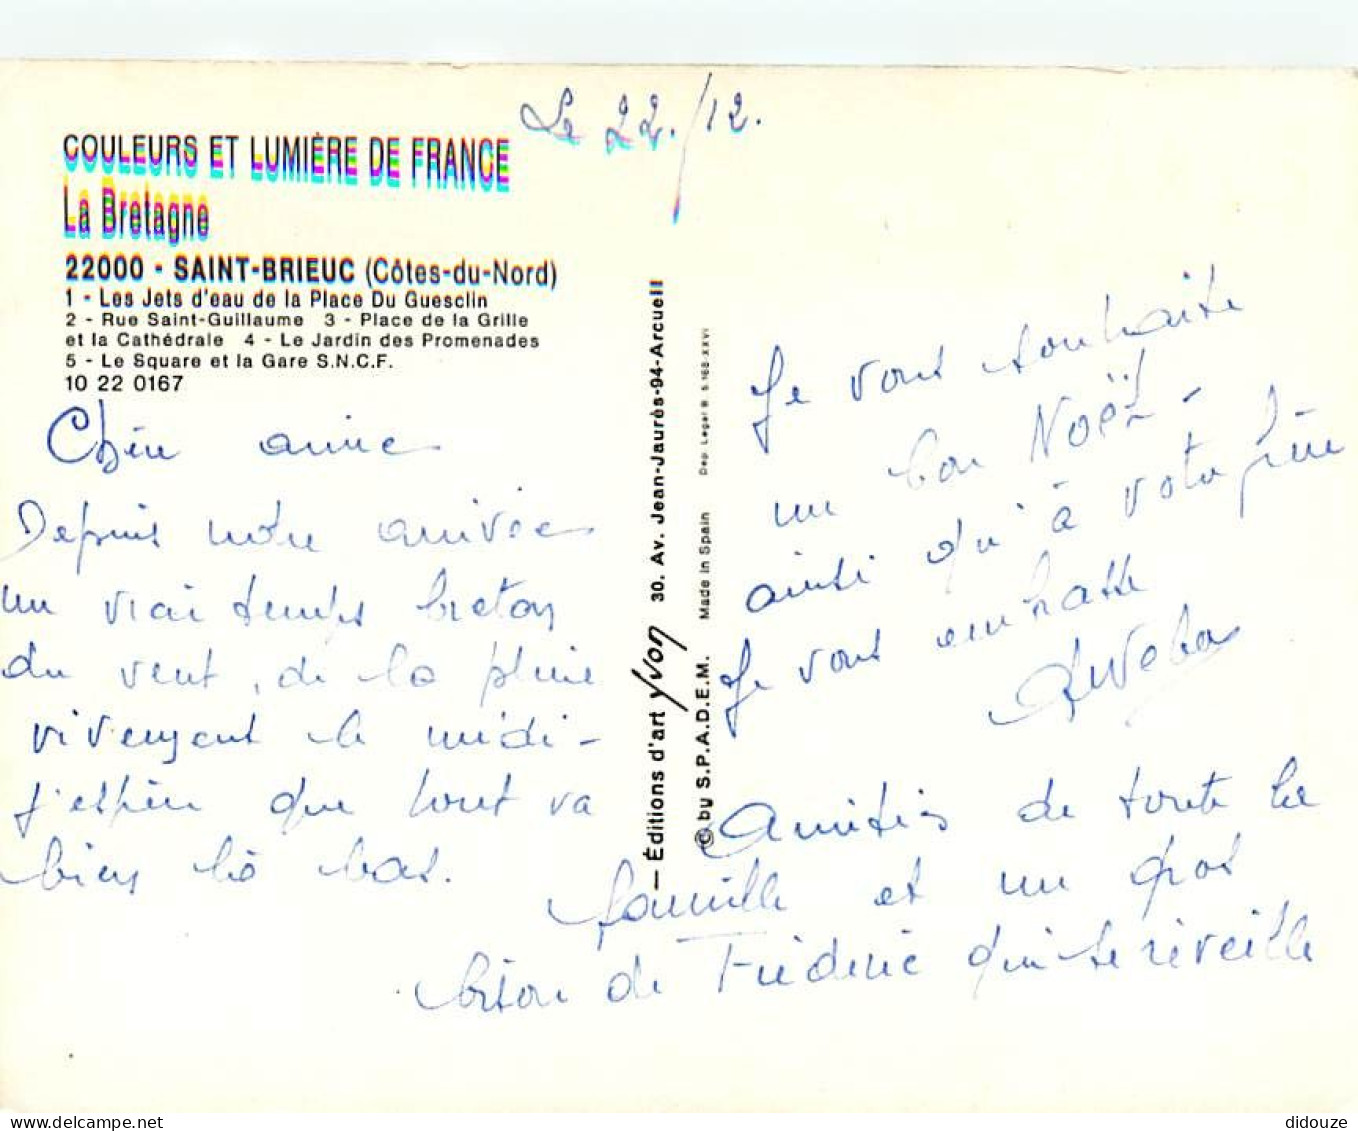 Le 22/12.
COULEURS ET LUMIÈRE DE FRANCE
La Bretagne
22000 - SAINT-BRIEUC (Côtes-du-Nord)
1 - Les Jets d'eau de la Place Du Guesclin
2 - Rue Saint-Guillaume 3 - Place de la Grille
et la Cathédrale 4 - Le Jardin des Promenades
5 - Le Square et la Gare S.N.C.F.
10 22 0167
Chère amie
Depuis notre arrivée
un vrai temps breton
du vent, de la pluie
vivement le midi -
J'espère que tout va
bien là bas.
— Éditions d'art yvon 30. Av. Jean-Jaurès-94-Arcueil
© by S.P.A.D.E.M. Made in Spain Dép. Légal B. 5.168-XXVI
Je vous souhaite
un bon Noël -
ainsi qu'à votre père
Je vous embrasse
Amitiés de toute la
famille et un gros
bisou de Frédéric qui se réveille
didouze